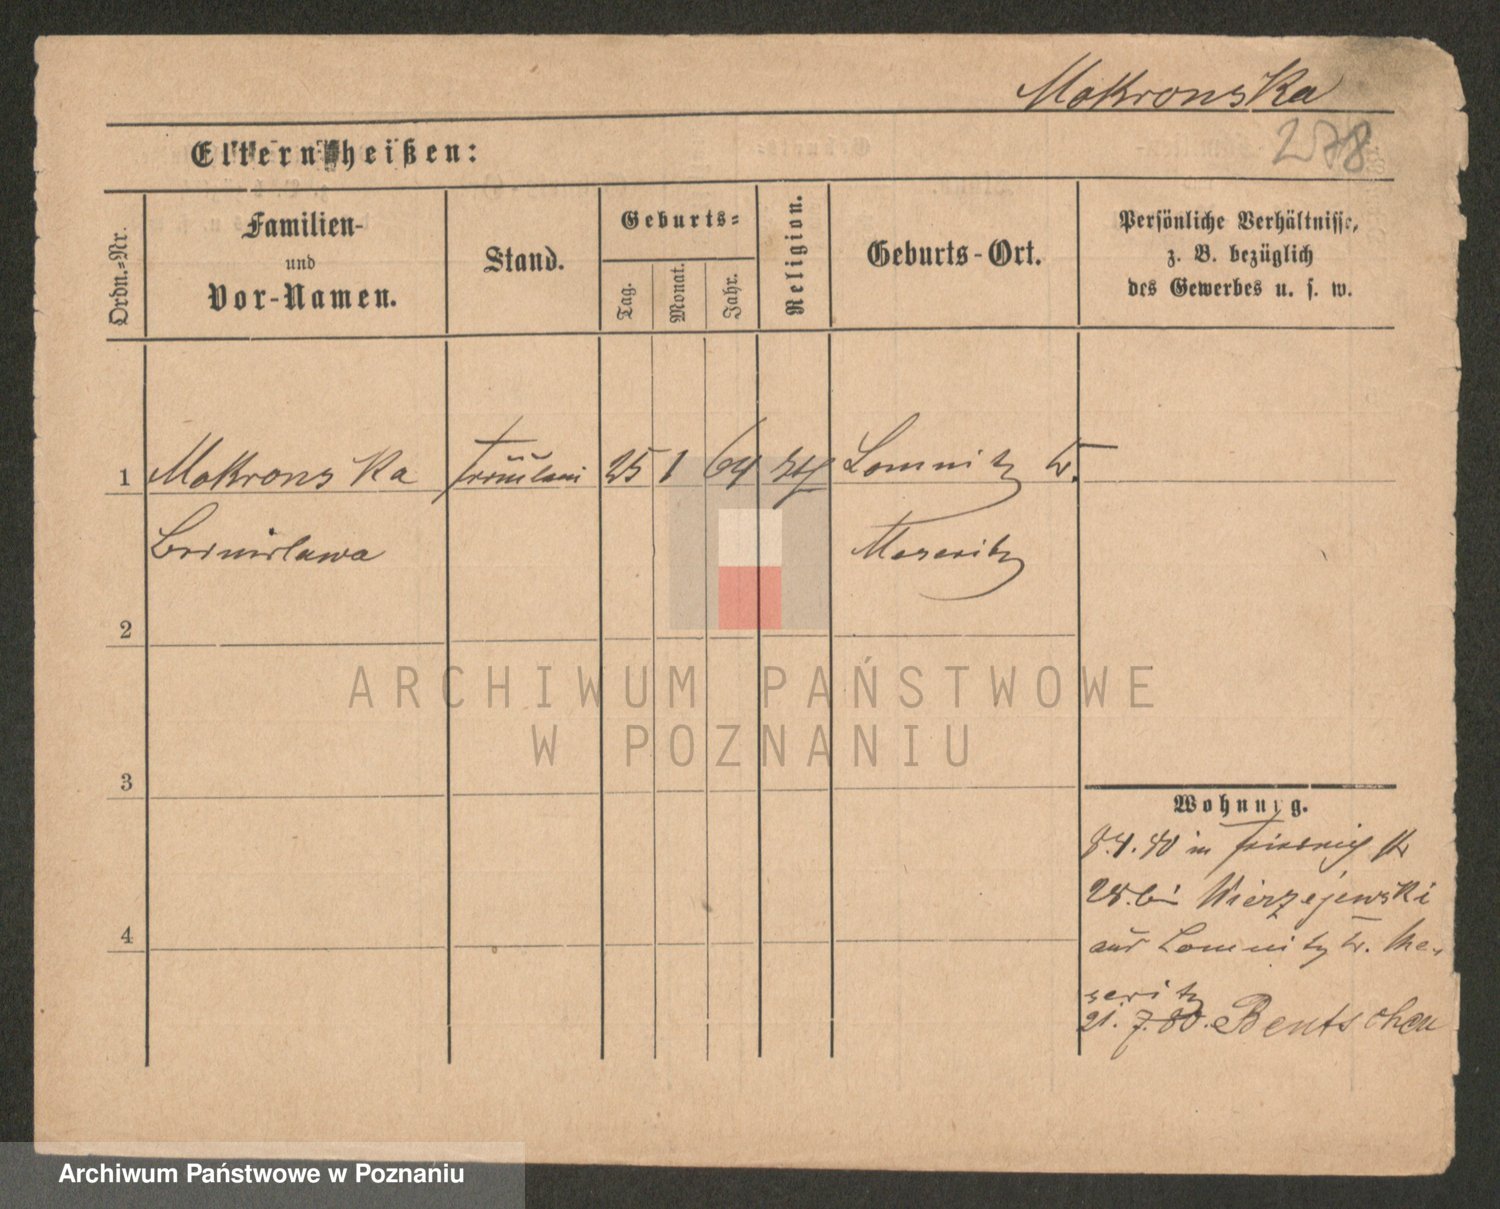 Mokronska
278
Eltern heißen:
Ordn.=Nr.
Familien-
und
Vor-Namen.
Stand.
Geburts=
Tag.
Monat.
Jahr.
Religion.
Geburts-Ort.
Persönliche Verhältnisse,
z. B. bezüglich
des Gewerbes u. s. w.
1 Mokronska Fräulein 25 1 64 Lomnitz Kr.
Bronislawa Meseritz
2
3
4
Wohnung.
8.4.80 in Friedrich Str
28. bei Wierzejewski
aus Lomnitz Kr. Me-
seritz
21. 7. 80. Bentschen
ARCHIWUM PAŃSTWOWE
W POZNANIU
Archiwum Państwowe w Poznaniu